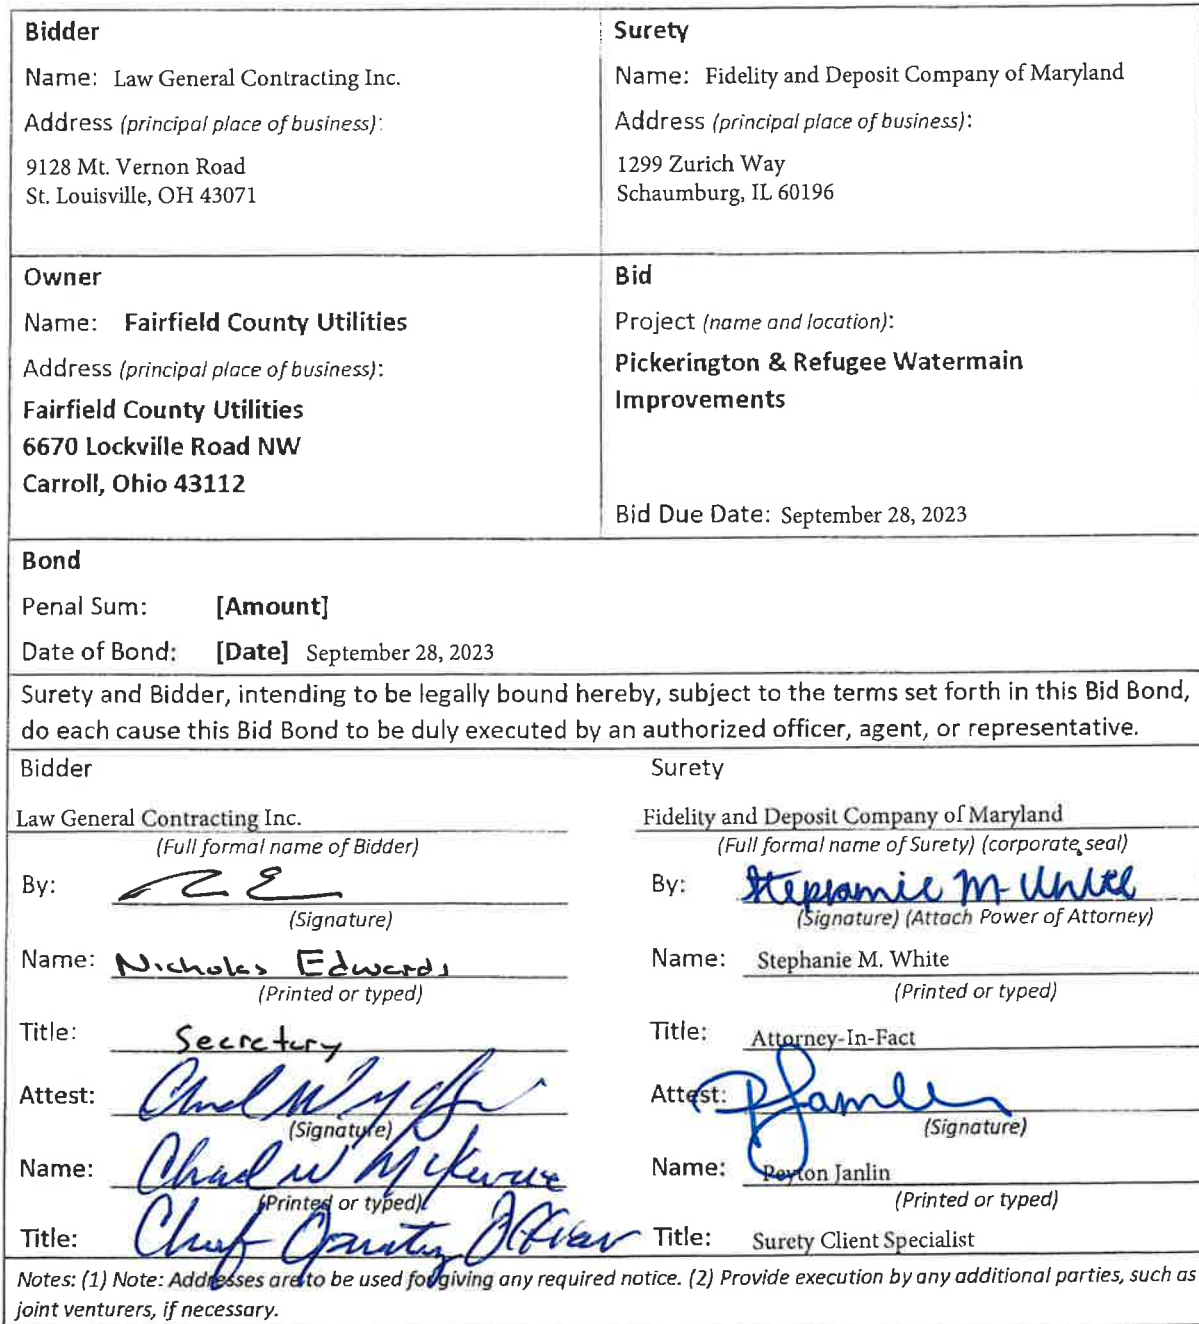 Bidder
Name: Law General Contracting Inc.
Address (principal place of business):
9128 Mt. Vernon Road
St. Louisville, OH 43071
Surety
Name: Fidelity and Deposit Company of Maryland
Address (principal place of business):
1299 Zurich Way
Schaumburg, IL 60196
Owner
Name: Fairfield County Utilities
Address (principal place of business):
Fairfield County Utilities
6670 Lockville Road NW
Carroll, Ohio 43112
Bid
Project (name and location):
Pickerington & Refugee Watermain
Improvements
Bid Due Date: September 28, 2023
Bond
Penal Sum: [Amount]
Date of Bond: [Date] September 28, 2023
Surety and Bidder, intending to be legally bound hereby, subject to the terms set forth in this Bid Bond,
do each cause this Bid Bond to be duly executed by an authorized officer, agent, or representative.
Bidder
Law General Contracting Inc.
(Full formal name of Bidder)
By:
(Signature)
Name: Nicholas Edwards
(Printed or typed)
Title: Secretary
Attest:
(Signature)
Name: Chad W
(Printed or typed)
Title: Chief Operating Officer
Surety
Fidelity and Deposit Company of Maryland
(Full formal name of Surety) (corporate seal)
By: Stephanie M White
(Signature) (Attach Power of Attorney)
Name: Stephanie M. White
(Printed or typed)
Title: Attorney-In-Fact
Attest:
(Signature)
Name: Peyton Janlin
(Printed or typed)
Title: Surety Client Specialist
Notes: (1) Note: Addresses are to be used for giving any required notice. (2) Provide execution by any additional parties, such as
joint venturers, if necessary.